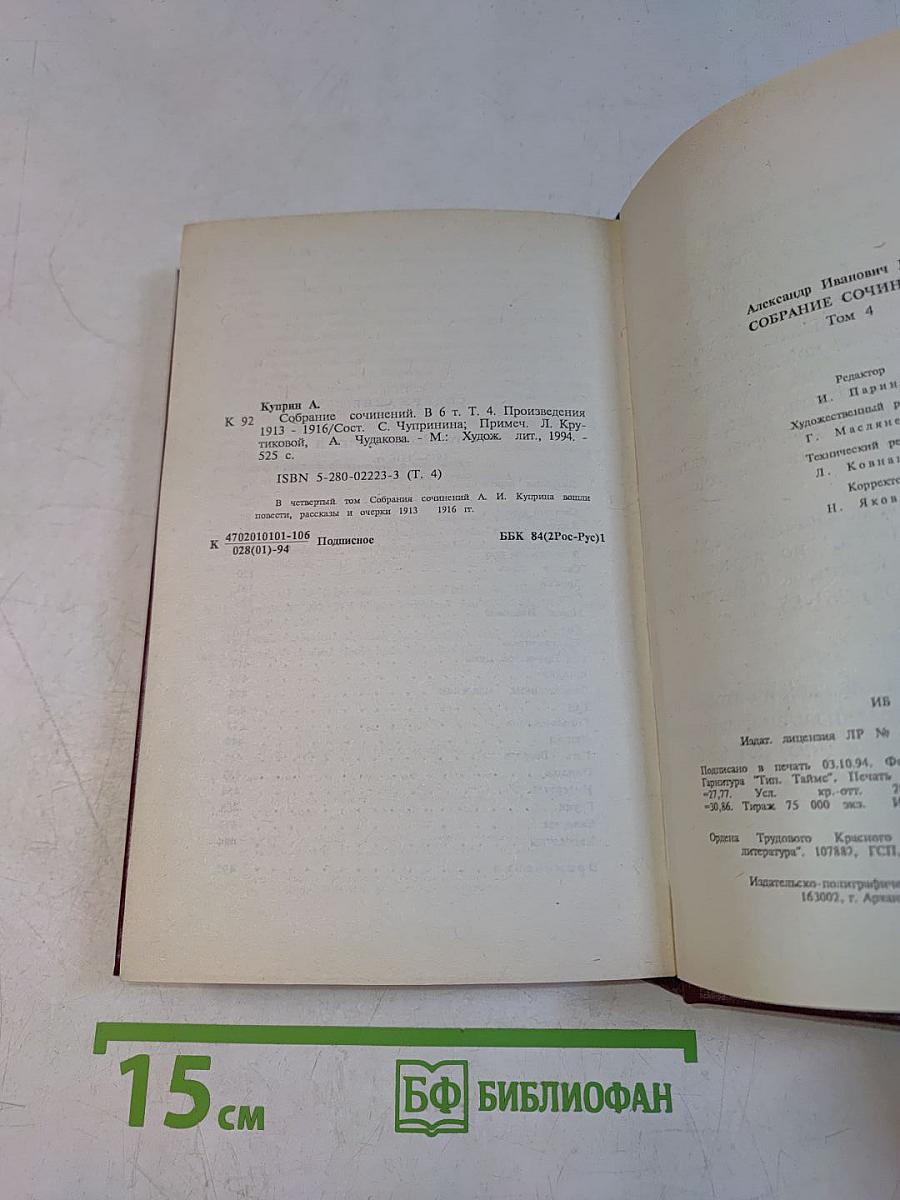 Куприн А.
К 92 Собрание сочинений. В 6 т. Т. 4. Произведения
1913 - 1916/Сост. С. Чупринина; Примеч. Л. Кру-
тиковой, А. Чудакова. - М.: Худож. лит., 1994. -
525 с.
ISBN 5-280-02223-3 (Т. 4)
В четвертый том Собрания сочинений А. И. Куприна вошли
повести, рассказы и очерки 1913 1916 гг.
К 4702010101-106 Подписное ББК 84(2Рос-Рус)1
028(01)-94
Александр Иванович
СОБРАНИЕ СОЧИН
Том 4
Редактор
И. Парин
Художественный р
Г. Маслян
Технический ре
Л. Ковна
Корректо
Н. Яков
ИБ
Издат. лицензия ЛР №
Подписано в печать 03.10.94. Фо
Гарнитура "Тип. Таймс". Печать
=27,77. Усл. кр.-отт.
=30,86. Тираж 75 000 экз. И
Ордена Трудового Красного
литература". 107882, ГСП,
Издательско-полиграфиче
163002, г. Арха
15 см
БФ БИБЛИОФАН